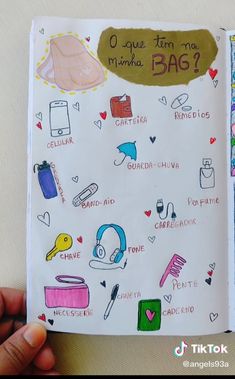 O que tem na
minha BAG?
CELULAR
CARTEIRA
REMÉDIOS
GUARDA-CHUVA
BAND-AID
PERFUME
CARREGADOR
CHAVE
FONE
PENTE
NECESSERIE
CANETA
CADERNO
TikTok
@angels93a